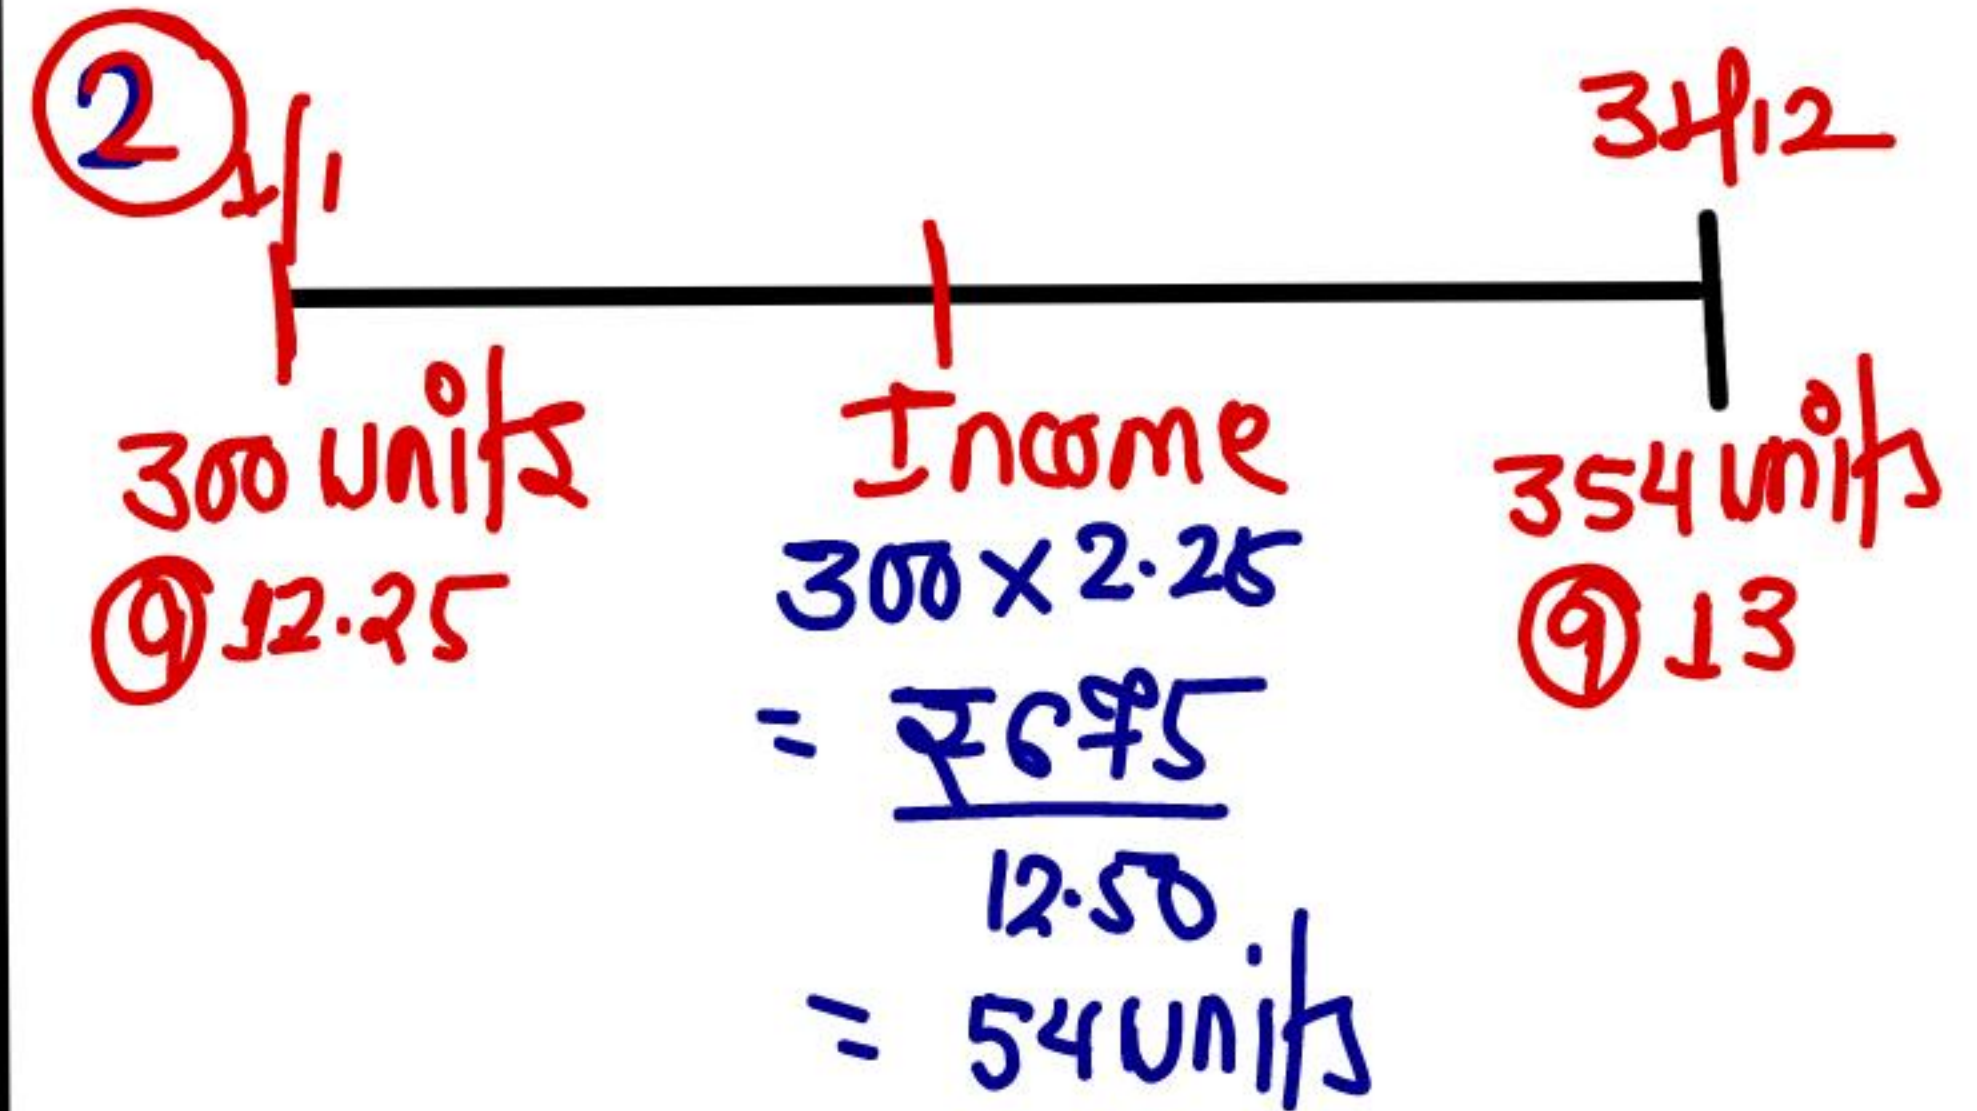 2
1/1
31/12
300 units
@ 12.25
Income
300 × 2.25
= ₹675
12.50
= 54 units
354 units
@ 13